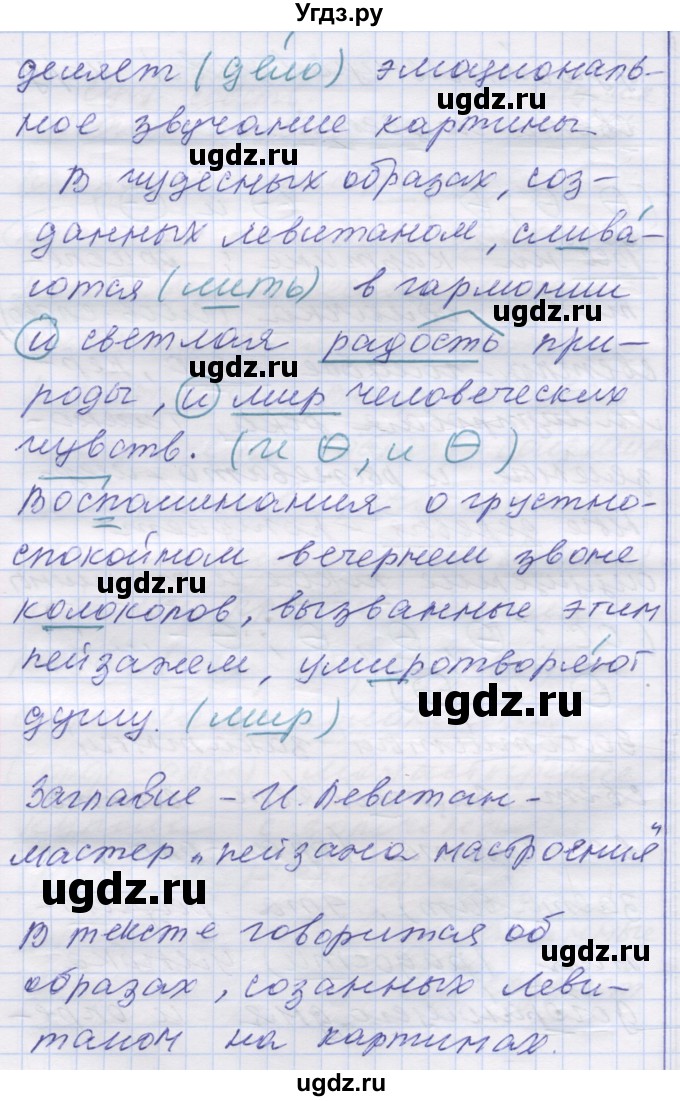 Угдз.ру
деляет (дело) эмоциональ-
ugdz.ru
ное звучание картины
ugdz.ru
В чудесных образах, соз-
данных левитаном, слива-
ются (лить) в гармонии
ugdz.ru
и светлая радость при-
роды, и мир человеческих
чувств. (и О, и О)
Воспоминания о грустно-
спокойном вечернем звоне
ugdz.ru
колоколов, вызванные этим
пейзажем, умиротворяют
ugdz.ru
душу. (мир)
Заглавие - И. Левитан -
мастер „пейзажа настроения"
ugdz.ru
В тексте говорится об
ugdz.ru
образах, созанных Леви-
таном на картинах.
ugdz.ru